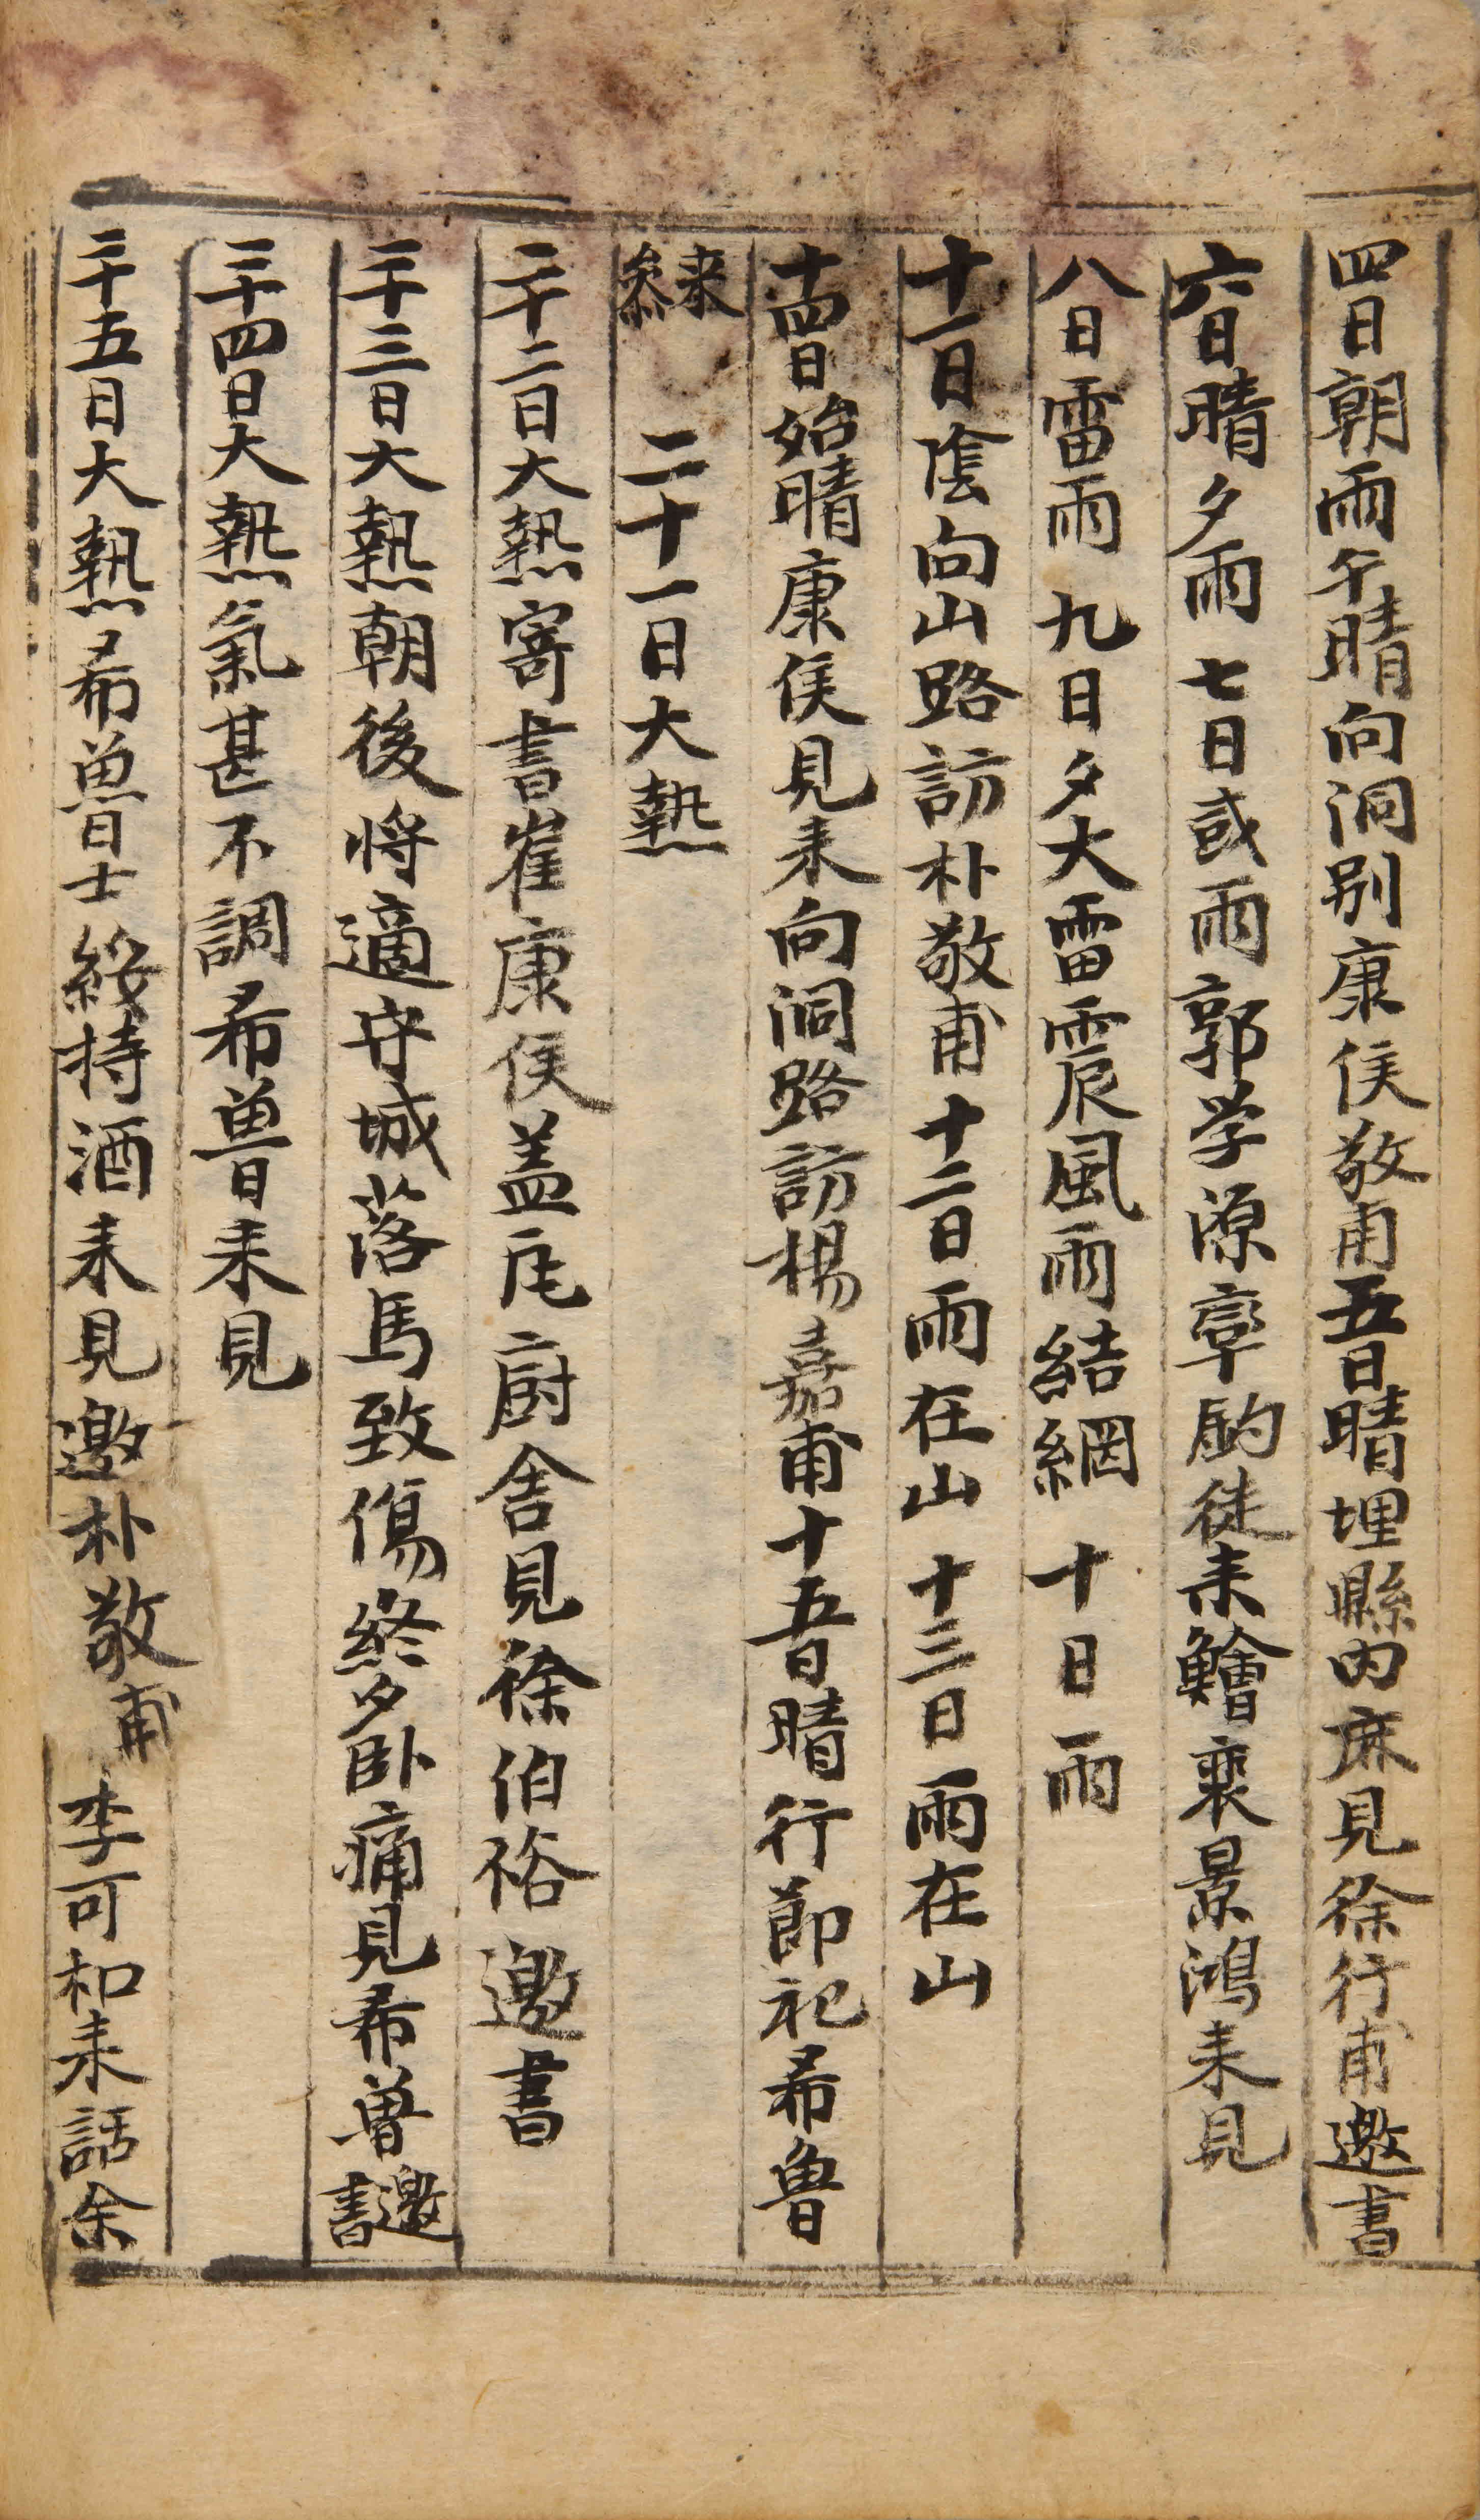 四日朝雨午晴向洞別康侯敬甫五日晴埋縣內麻見徐行甫邀書
六日晴夕雨 七日或雨郭学源率 徒来鱠裵景鴻来見
八日雷雨 九日夕大雷震風雨結網 十日雨
十一日陰向山路訪朴敬甫 十二日雨在山 十三日雨在山
十四日始晴康侯見来向洞路訪楊嘉甫十五日晴行節祀希魯
来叅 二十一日大熱
二十二日大熱寄書崔康侯盖瓦廚舍見徐伯裕邀書
二十三日大熱朝後将適守城落馬致傷終夕卧痛見希魯邀書
二十四日大熱氣甚不調希魯来見
二十五日大熱希魯士綏持酒来見邀朴敬甫李可和来話余